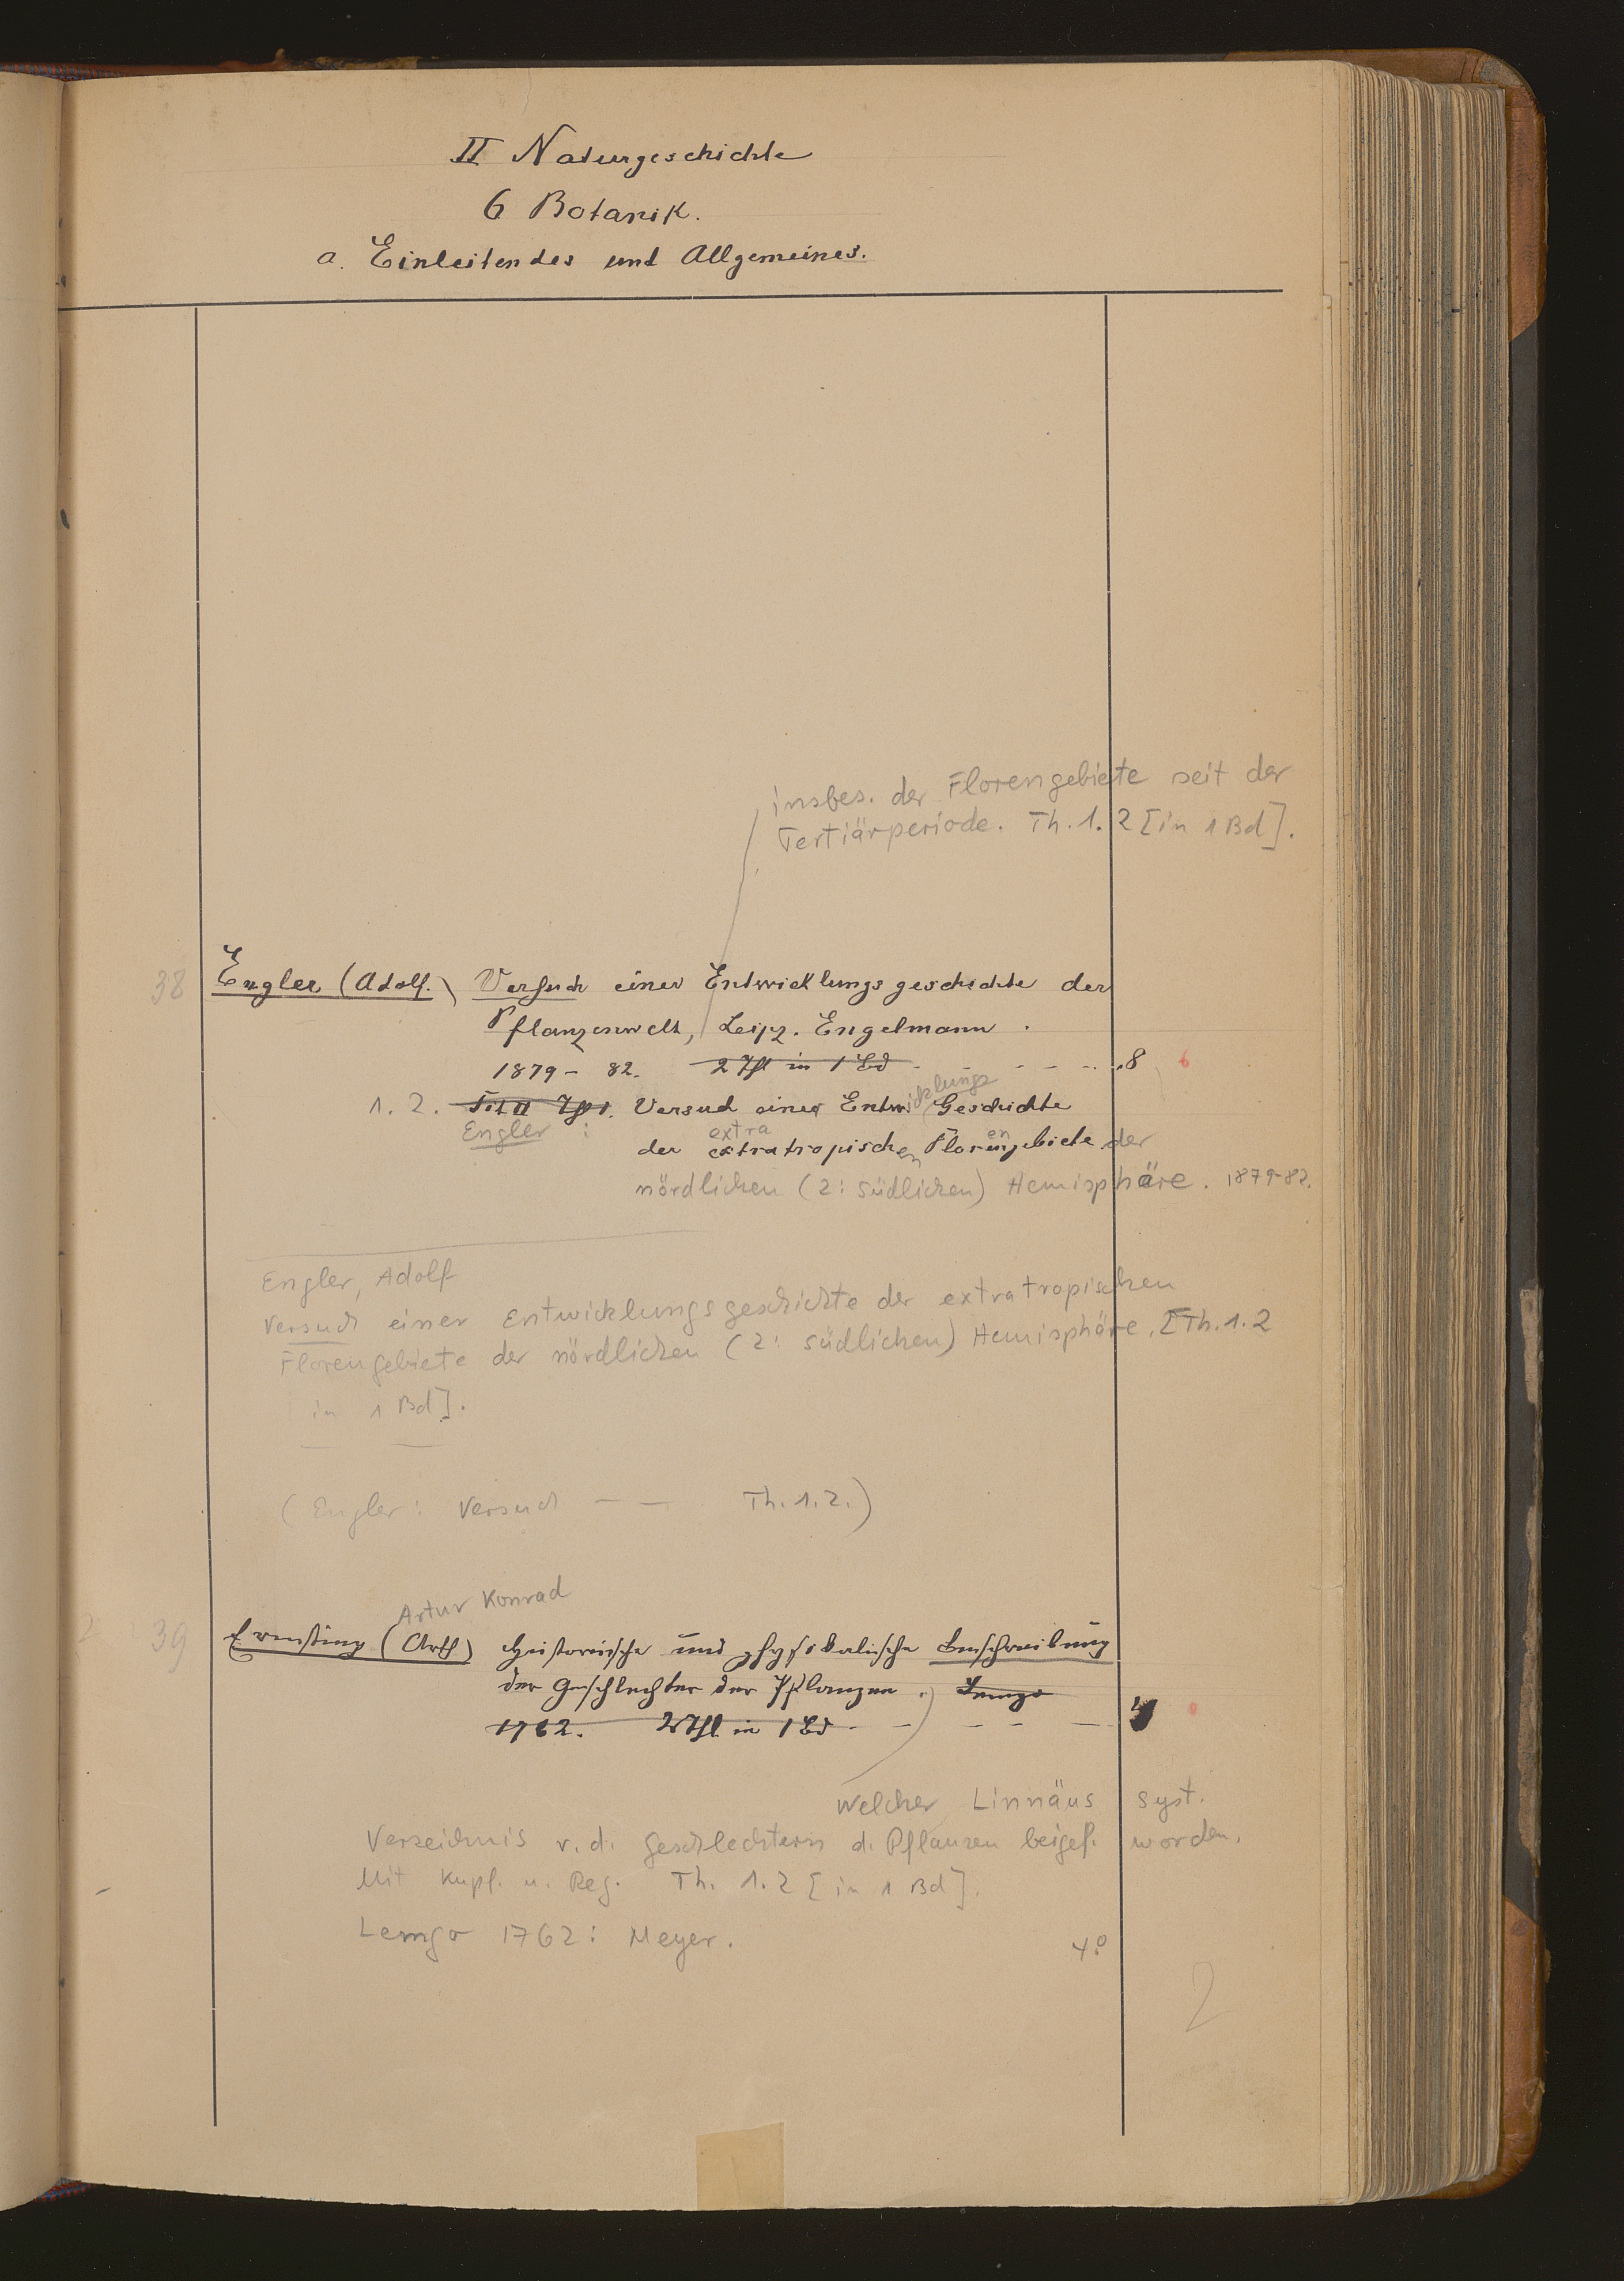 II Naturgeschichte
6 Botanik.
a. Einleitendes und Allgemeines.
insbes. der Florengebiete seit der
Tertiärperiode. Th. 1. 2 [in 1 Bd].
38 Engler (Adolf.) Versuch einer Entwicklungsgeschichte der
Pflanzenwelt, Leipz. Engelmann.
1879 - 82. 2 Thl in 1 Bd - - - - .. 8 6
1. 2. Versuch einer Entwicklungs Geschichte
Engler :
der extratropischen Florengebiete der
extra en
nördlichen (2: südlichen) Hemisphäre. 1879-82.
Engler, Adolf
Versuch einer Entwicklungsgeschichte der extratropischen
Florengebiete der nördlichen (2: südlichen) Hemisphäre. [Th. 1. 2
in 1 Bd].
(Engler: Versuch — — Th. 1. 2.)
Artur Konrad
39 Ernsting (Arth) Historische und physikalische Beschreibung
der Geschlechter der Pflanzen. Lemgo
1762. 2 Thl. in 1 Bd - - - - - 4 0
welcher Linnäus syst.
Verzeichnis v. d. Geschlechtern d. Pflanzen beigef. worden.
Mit Kupf. u. Reg. Th. 1. 2 [in 1 Bd].
Lemgo 1762: Meyer. 4°
2